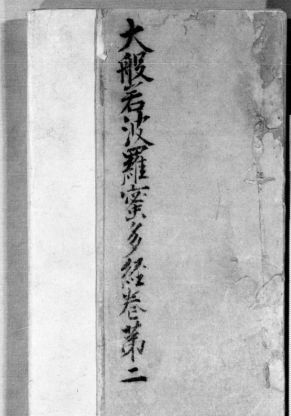 大般若波羅蜜多経巻第二